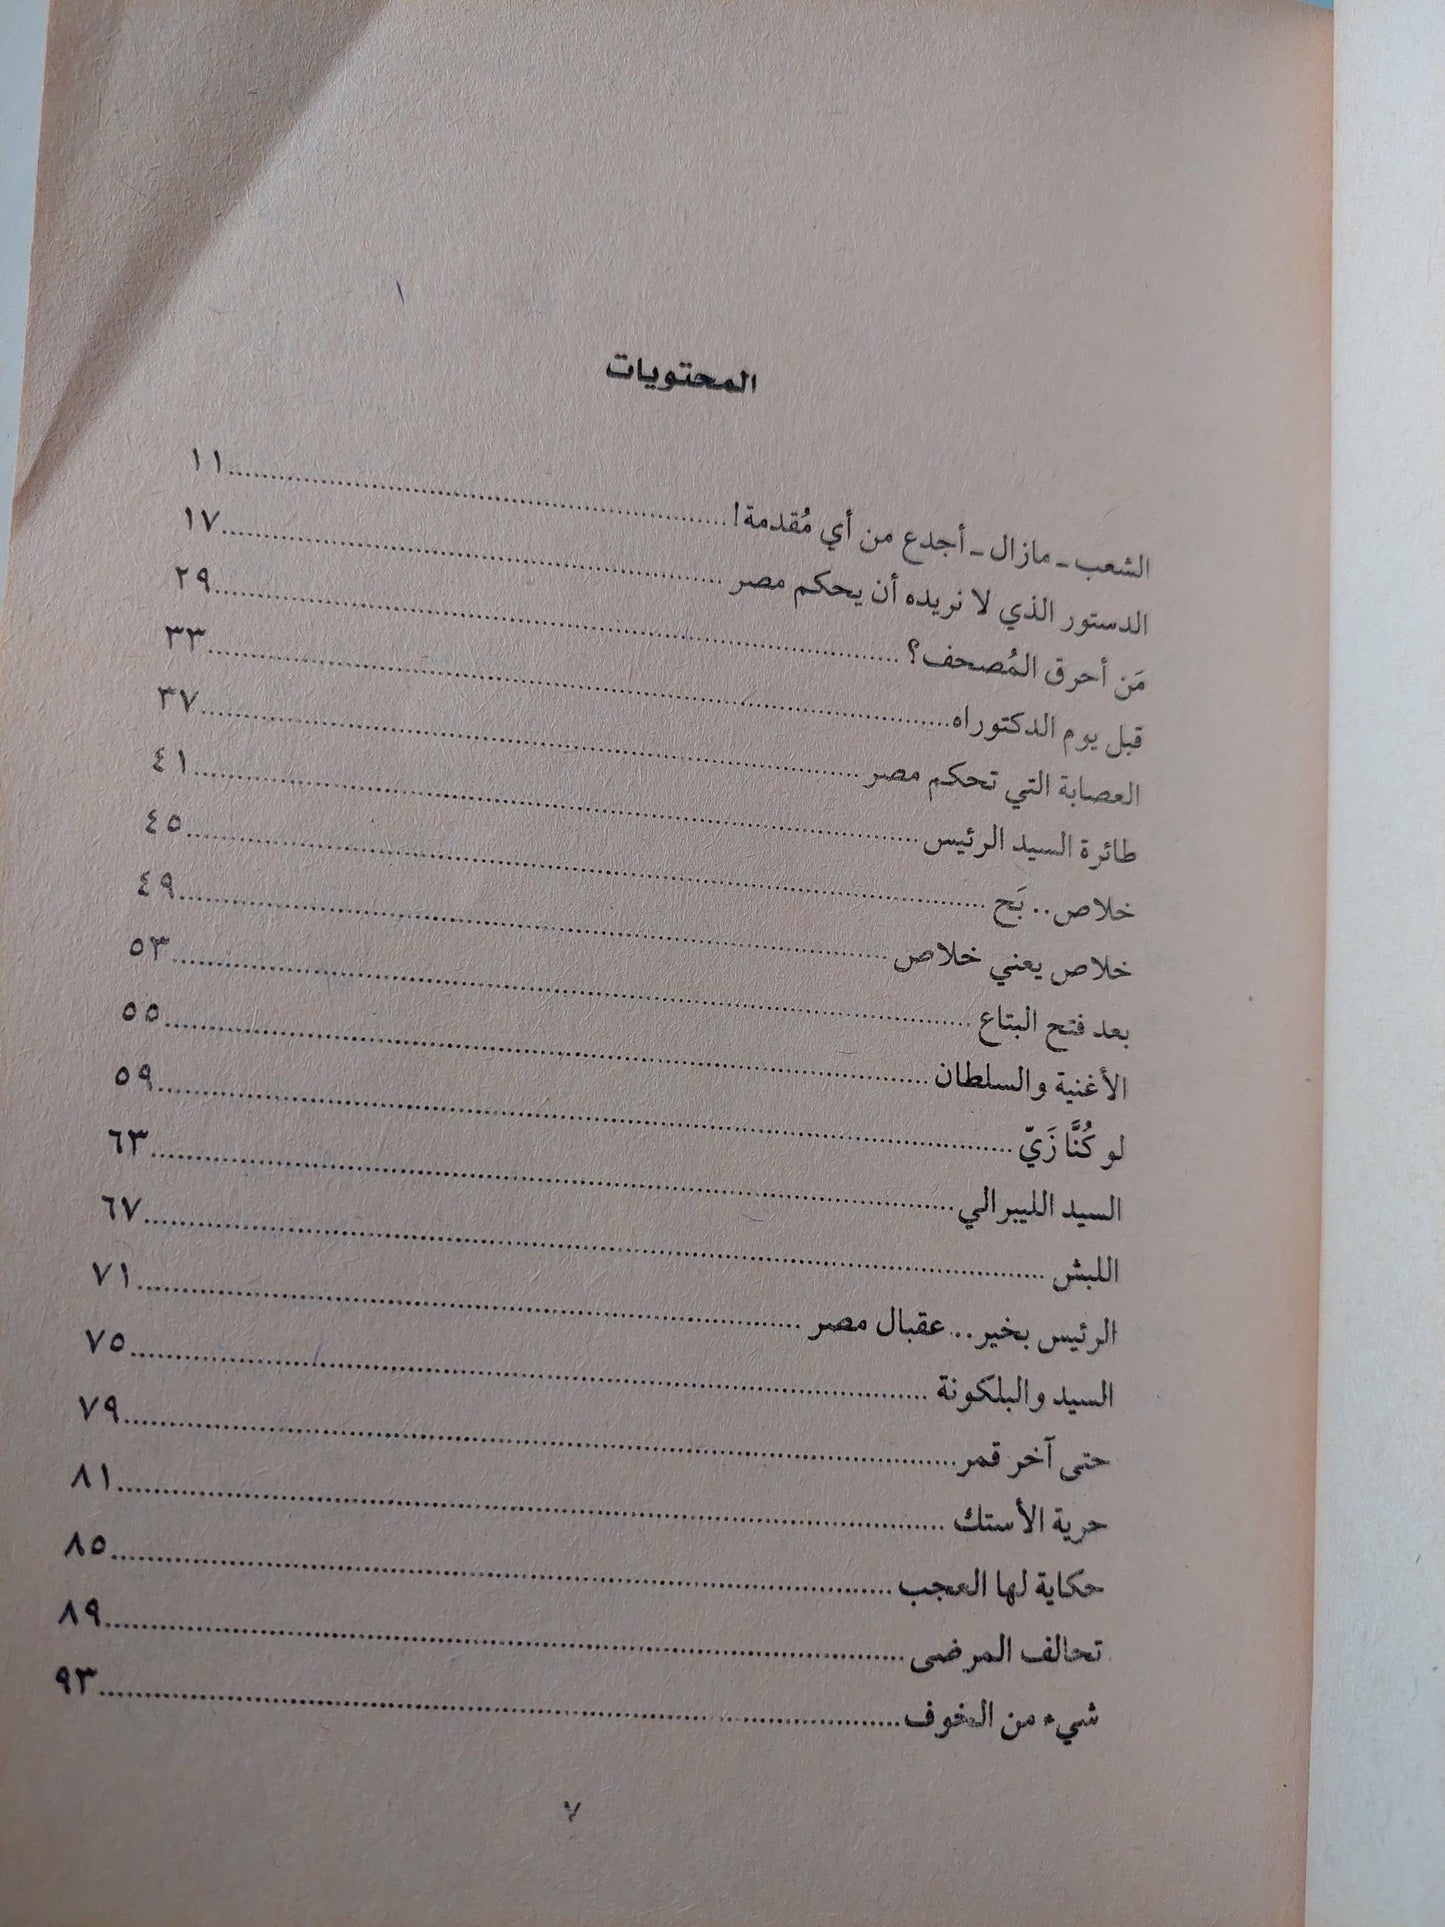 المحتويات
الشعب ـ مازال ـ أجدع من أي مُقدمة! ........ ١١
الدستور الذي لا نريده أن يحكم مصر ........ ١٧
مَن أحرق المُصحف؟ ........ ٢٩
قبل يوم الدكتوراه ........ ٣٣
العصابة التي تحكم مصر ........ ٣٧
طائرة السيد الرئيس ........ ٤١
خلاص.. بَح ........ ٤٥
خلاص يعني خلاص ........ ٤٩
بعد فتح البتاع ........ ٥٣
الأغنية والسلطان ........ ٥٥
لو كُنَّا زَيّ ........ ٥٩
السيد الليبرالي ........ ٦٣
اللبش ........ ٦٧
الرئيس بخير.. عقبال مصر ........ ٧١
السيد والبلكونة ........ ٧٥
حتى آخر قمر ........ ٧٩
حرية الأستك ........ ٨١
حكاية لها العجب ........ ٨٥
تحالف المرضى ........ ٨٩
شيء من الخوف ........ ٩٣
٧